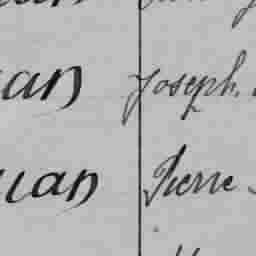 an Joseph
uan Pierre